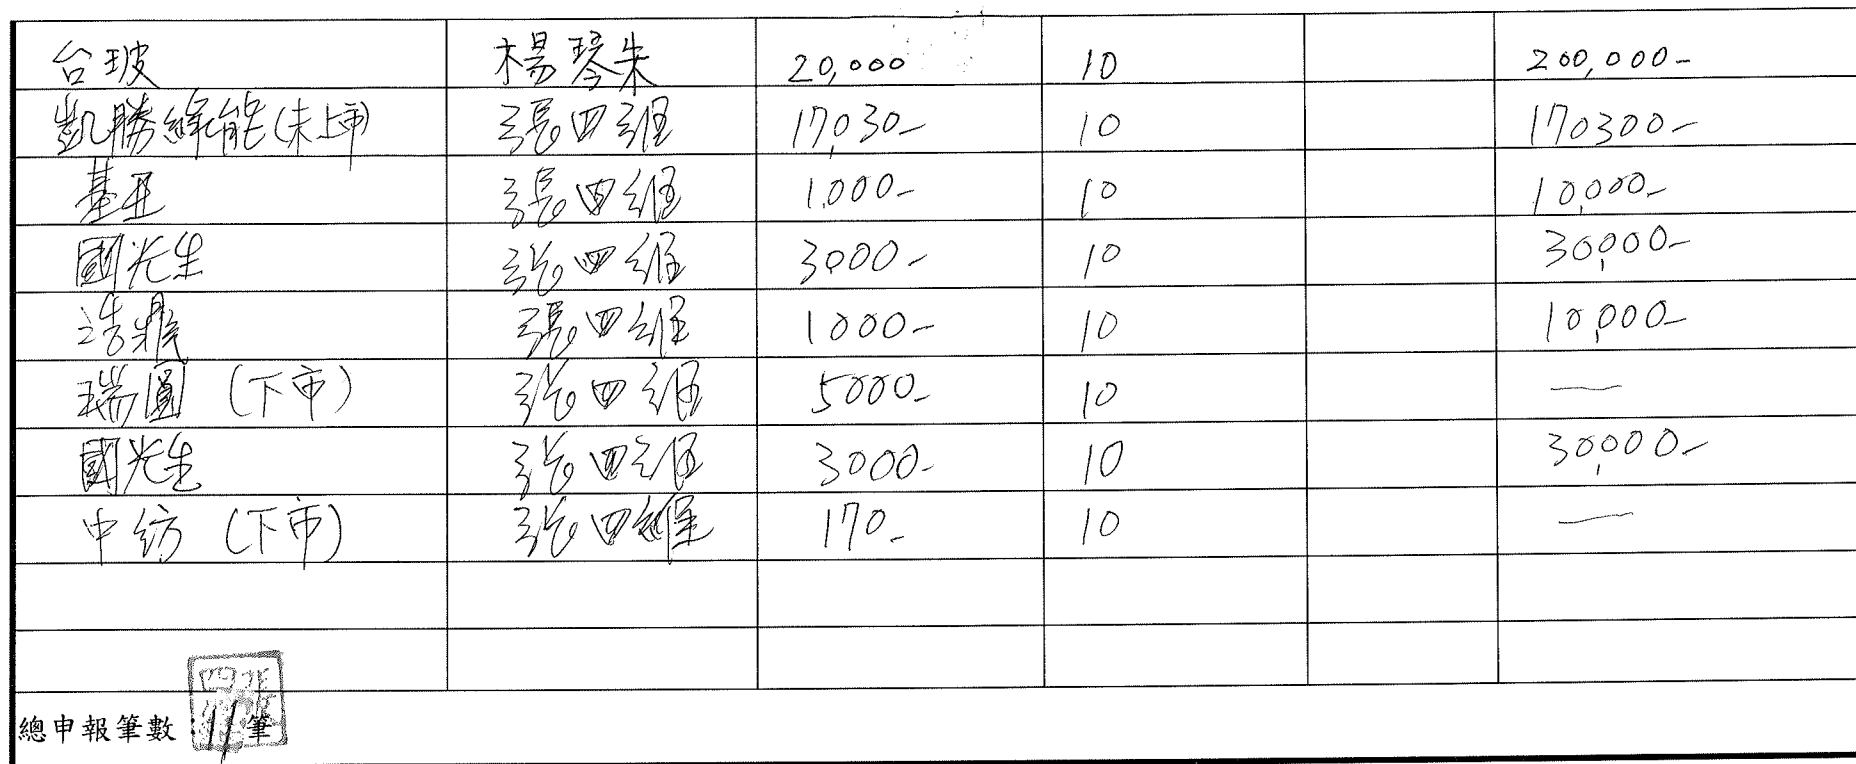 台玻 楊琴朱 20,000 10 200,000-
凱勝綠能(未上市) 張四維 17,030- 10 170300-
基亞 張四維 1,000- 10 10,000-
國光生 張四維 3000- 10 30,000-
浩鼎 張四維 1000- 10 10,000-
瑞圓 (下市) 張四維 5000- 10 —
國光生 張四維 3000- 10 30,000-
中紡 (下市) 張四維 170- 10 —
總申報筆數:11筆